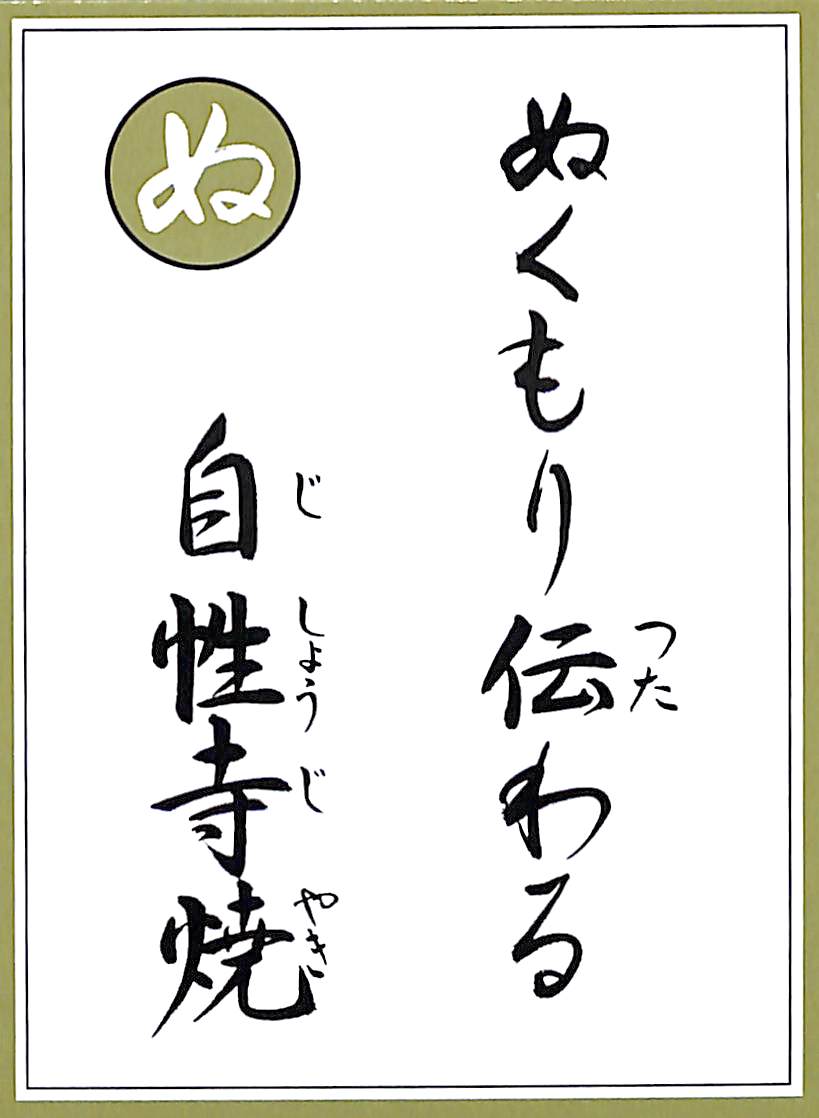 ぬくもり伝わる
つた
自性寺焼
じしょうじやき
ぬ